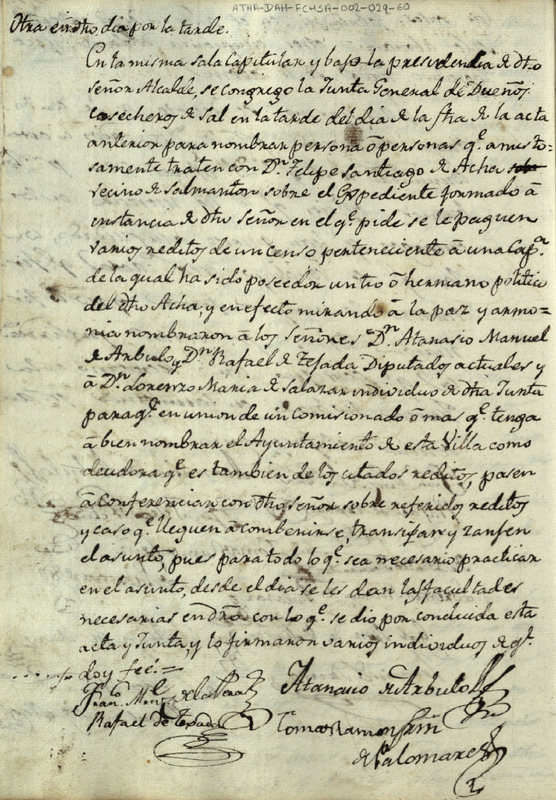 ATHA-DAH-FCHSA-002-029-60
Otra en dho dia por la tarde.
En la misma sala Capitular y bajo la presidencia de dho
señor Alcalde, se congregó la Junta General de Dueños
cosecheros de sal en la tarde del dia de la fha de la acta
anterior para nombrar persona ó personas q.e amisto=
samente traten con D.n Felipe santiago de Acha
vecino de salmanton sobre el Expediente formado á
instancia de dho señor en el q.e pide se le paguen
varios reditos de un censo perteneciente á una Cap.a
de la qual ha sido poseedor un tio ó hermano politico
del dho Acha; y en efecto mirando á la paz y armo=
nia nombraron á los señores D.n Atanasio Manuel
de Arbulo y D.n Rafael de Tejada Diputados actuales y
á D.n Lorenzo Maria de salazar individuo de dha Junta
para q.e en union de un comisionado ó mas q.e tenga
á bien nombrar el Ayuntamiento de esta Villa como
deudora q.e es tambien de los citados reditos, pasen
á conferenciar con dho señor sobre referidos reditos
y caso q.e lleguen á combenirse, transijan y zanjen
el asunto, pues para todo lo q.e sea necesario practicar
en el asunto, desde el dia se les dan las facultades
necesarias en dro. con lo q.e se dio por concluida esta
acta y Junta y lo firmaron varios individuos de q.e
doy fee=
Fran.co M.l de la Pena
Atanasio de Arbulo
Rafael de Tejada
Tomas Ramon
de Palomares